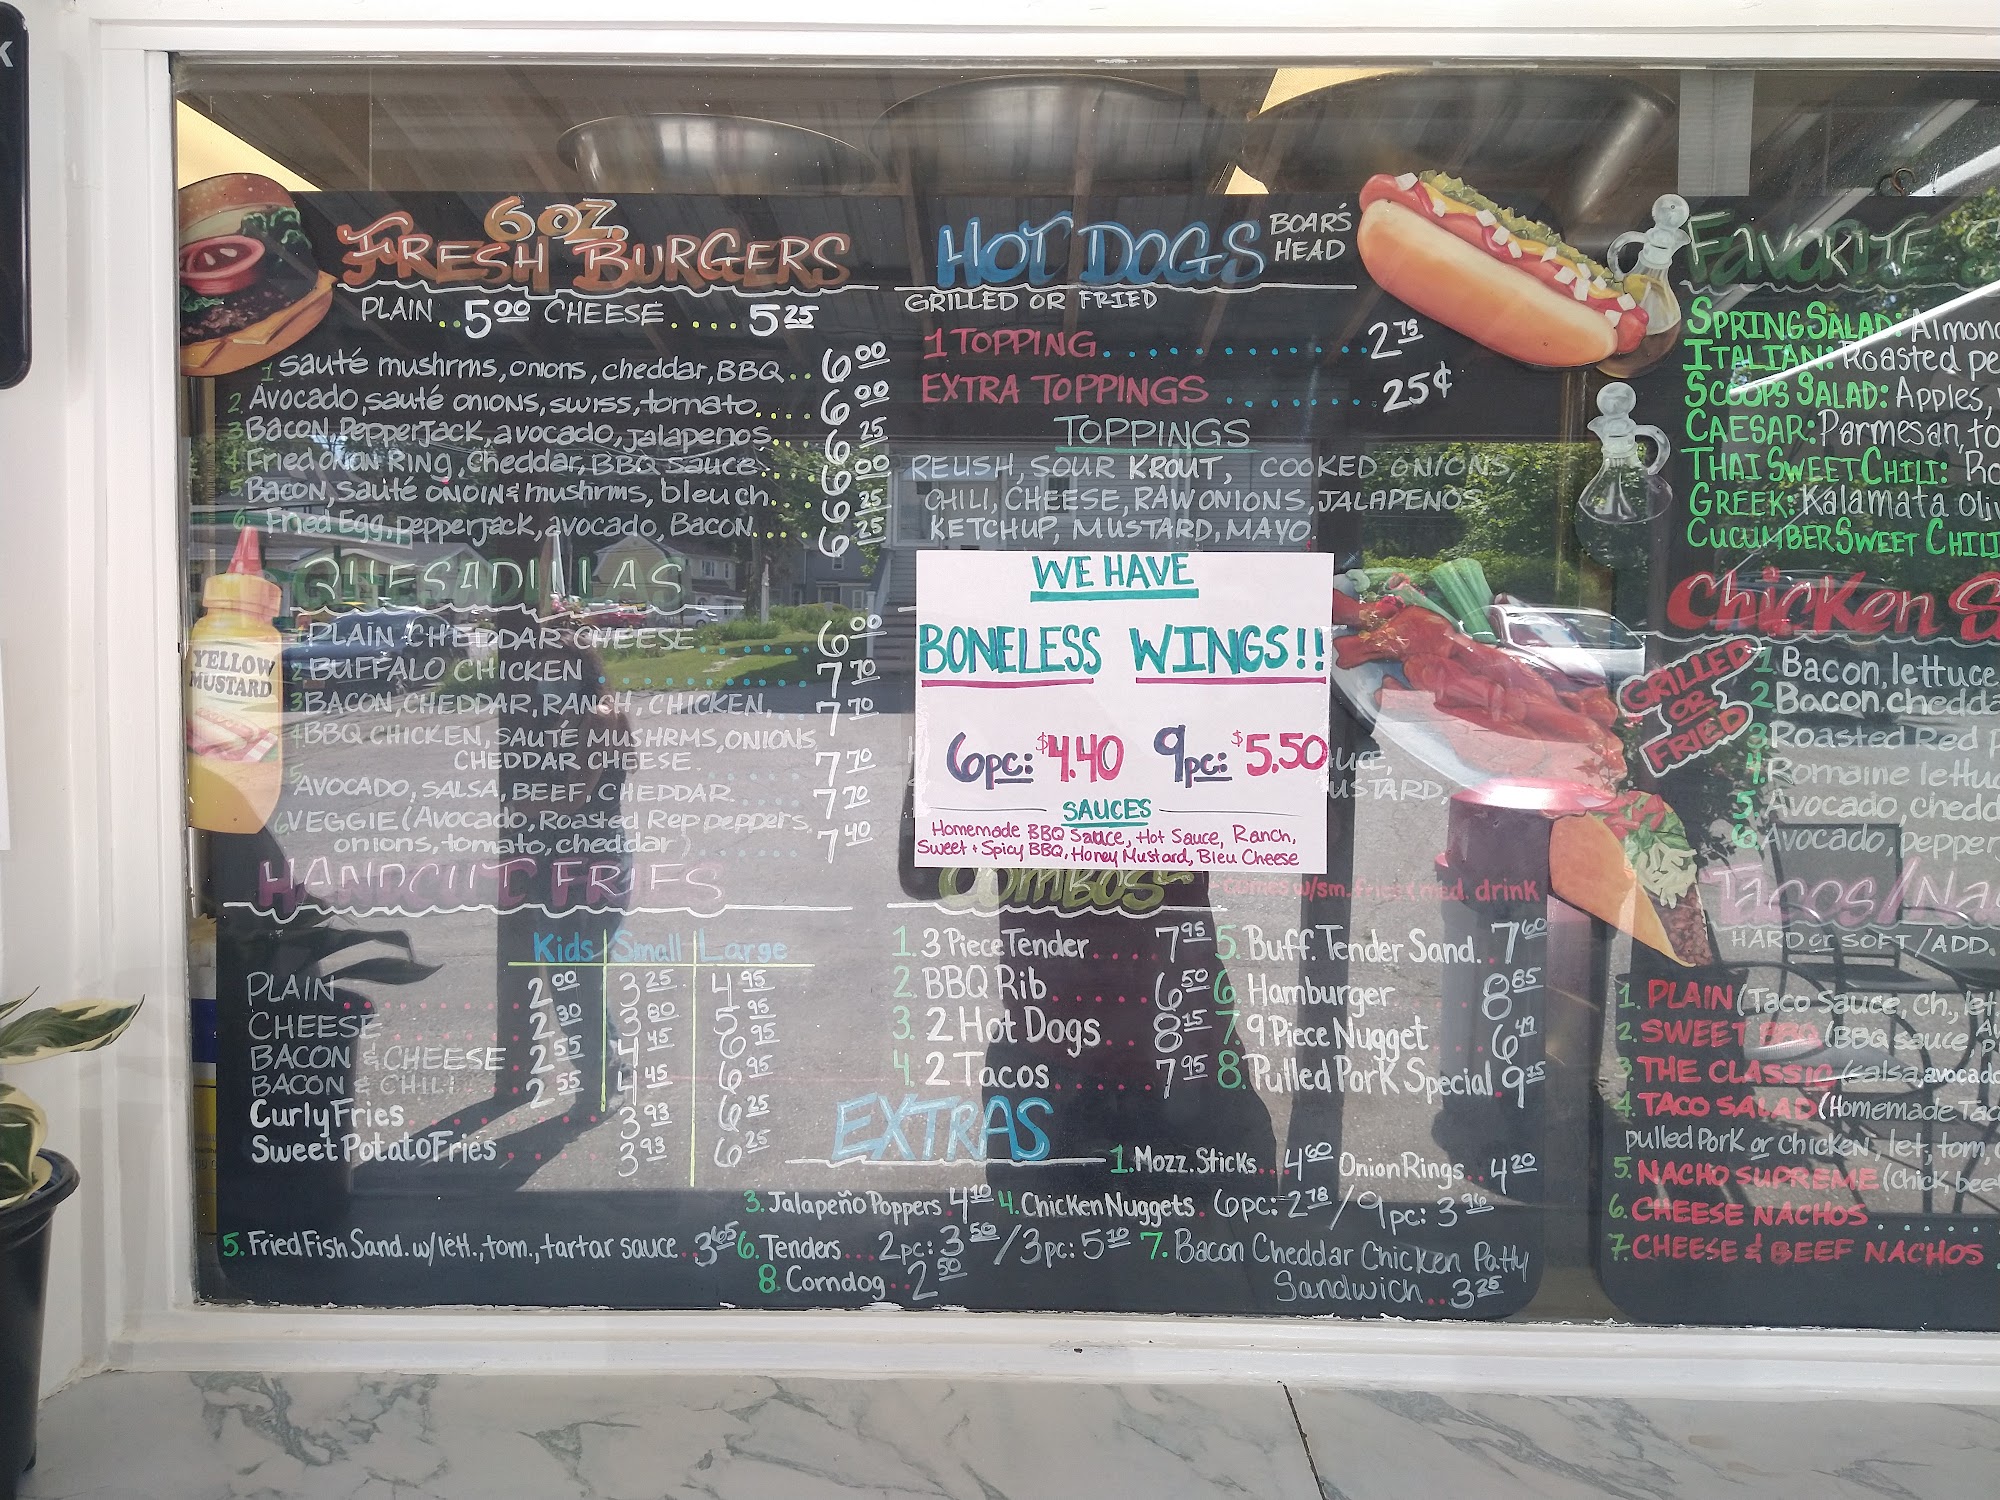 K
6 OZ.
FRESH BURGERS
PLAIN..5.00 CHEESE....5.25
1. Sauté mushrms, onions, cheddar, BBQ..6.00
2. Avocado, sauté onions, swiss, tomato....6.00
3. Bacon, Pepperjack, avocado, jalapenos...6.25
4. Fried onion Ring, cheddar, BBQ Sauce...6.00
5. Bacon, sauté onoin & mushrms, bleu ch.6.25
6. Fried Egg, pepperjack, avocado, Bacon....6.25
YELLOW
MUSTARD
QUESADILLAS
1 PLAIN CHEDDAR CHEESE 6.00
2 BUFFALO CHICKEN 7.70
3 BACON, CHEDDAR, RANCH, CHICKEN, 7.70
4 BBQ CHICKEN, SAUTÉ MUSHRMS, ONIONS
CHEDDAR CHEESE 7.70
5 AVOCADO, SALSA, BEEF, CHEDDAR 7.70
6 VEGGIE (Avocado, Roasted Rep peppers,
onions, tomato, cheddar) 7.40
HANDCUT FRIES
Kids Small Large
PLAIN 2.00 3.25 4.95
CHEESE 2.30 3.80 5.95
BACON & CHEESE 2.55 4.45 6.95
BACON & CHILI 2.55 4.45 6.95
Curly Fries 3.93 6.25
Sweet Potato Fries 3.93 6.25
HOT DOGS BOAR'S
HEAD
GRILLED OR FRIED
1 TOPPING 2.75
EXTRA TOPPINGS 25¢
TOPPINGS
RELISH, SOUR KROUT, COOKED ONIONS,
CHILI, CHEESE, RAW ONIONS, JALAPENOS
KETCHUP, MUSTARD, MAYO.
WE HAVE
BONELESS WINGS!!
6pc: $4.40 9pc: $5.50
SAUCES
Homemade BBQ Sauce, Hot Sauce, Ranch,
Sweet + Spicy BBQ, Honey Mustard, Bleu Cheese
UCE,
USTARD,
COMBOS - comes w/sm. fries & med. drink
1. 3 Piece Tender 7.95 5. Buff. Tender Sand. 7.60
2. BBQ Rib 6.50 6. Hamburger 8.85
3. 2 Hot Dogs 8.15 7. 9 Piece Nugget 6.49
4. 2 Tacos 7.95 8. Pulled Pork Special 9.15
EXTRAS
1. Mozz. Sticks...4.60 Onion Rings..4.20
3. Jalapeño Poppers.4.10 4. Chicken Nuggets. 6pc: 2.78 / 9pc: 3.96
5. Fried Fish Sand. w/lett., tom., tartar sauce..3.65 6. Tenders... 2pc: 3.50 / 3pc: 5.10 7. Bacon Cheddar Chicken Patty
8. Corndog..2.50 Sandwich..3.25
FAVORITE
SPRING SALAD: Almon
ITALIAN: Roasted pe
SCOOPS SALAD: Apples,
CAESAR: Parmesan, to
THAI SWEET CHILI: Ro
GREEK: Kalamata oliv
CUCUMBER SWEET CHILI
Chicken S
GRILLED
OR
FRIED
1. Bacon, lettuce
2. Bacon, chedda
3. Roasted Red p
4. Romaine lettuc
5. Avocado, chedd
6. Avocado, pepper
TACOS/Na
HARD or SOFT / ADD.
1. PLAIN (Taco Sauce, ch., let,
2. SWEET BBQ (BBQ sauce,
3. THE CLASSIC (salsa, avocado
4. TACO SALAD (Homemade Tac
pulled Pork or chicken, let, tom,
5. NACHO SUPREME (chick, bee
6. CHEESE NACHOS
7. CHEESE & BEEF NACHOS